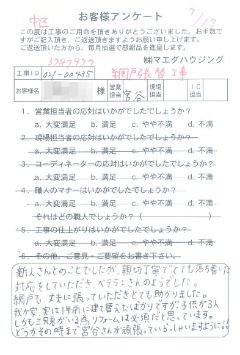 お客様アンケート
中区
7/17
この度は工事のご用命を頂きありがとうございました。お手数で
すがご記入頂き、ご返送頂きますようお願い申し上げます。
ご返送頂いた方から、毎月抽選で感謝品を進呈します。
㈱マエダハウジング
網戸張替工事
工事ID
様
営業担当
宮谷
現場担当
IC担当
1．営業担当者の応対はいかがでしたでしょうか？
a. 大変満足 b. 満足 c. やや不満 d. 不満
2．現場担当者の応対はいかがでしたでしょうか？
a. 大変満足 b. 満足 c. やや不満 d. 不満
3．コーディネーターの応対はいかがでしたでしょうか？
a. 大変満足 b. 満足 c. やや不満 d. 不満
4．職人のマナーはいかがでしたでしょうか？
a. 大変満足 b. 満足 c. やや不満 d. 不満
それはどの職人でしょうか？（ ）
5．工事の仕上がりはいかがでしたでしょうか？
a. 大変満足 b. 満足 c. やや不満 d. 不満
6．その他、ご意見・ご要望をお聞かせ下さい。
新人さんとのことでしたが、親切丁寧でとても落ち着いた
対応をしていただき、ベテランさんのようでした。
網戸も 枚に張っていただきとても助かりました。
我が家、実は1年前に建て替えたばかりですが子供が3人
しかも三兄がいる為、リフォームは必須だと思っています。
どうかその時まで宮谷さん頑張っていらっしゃいますように。